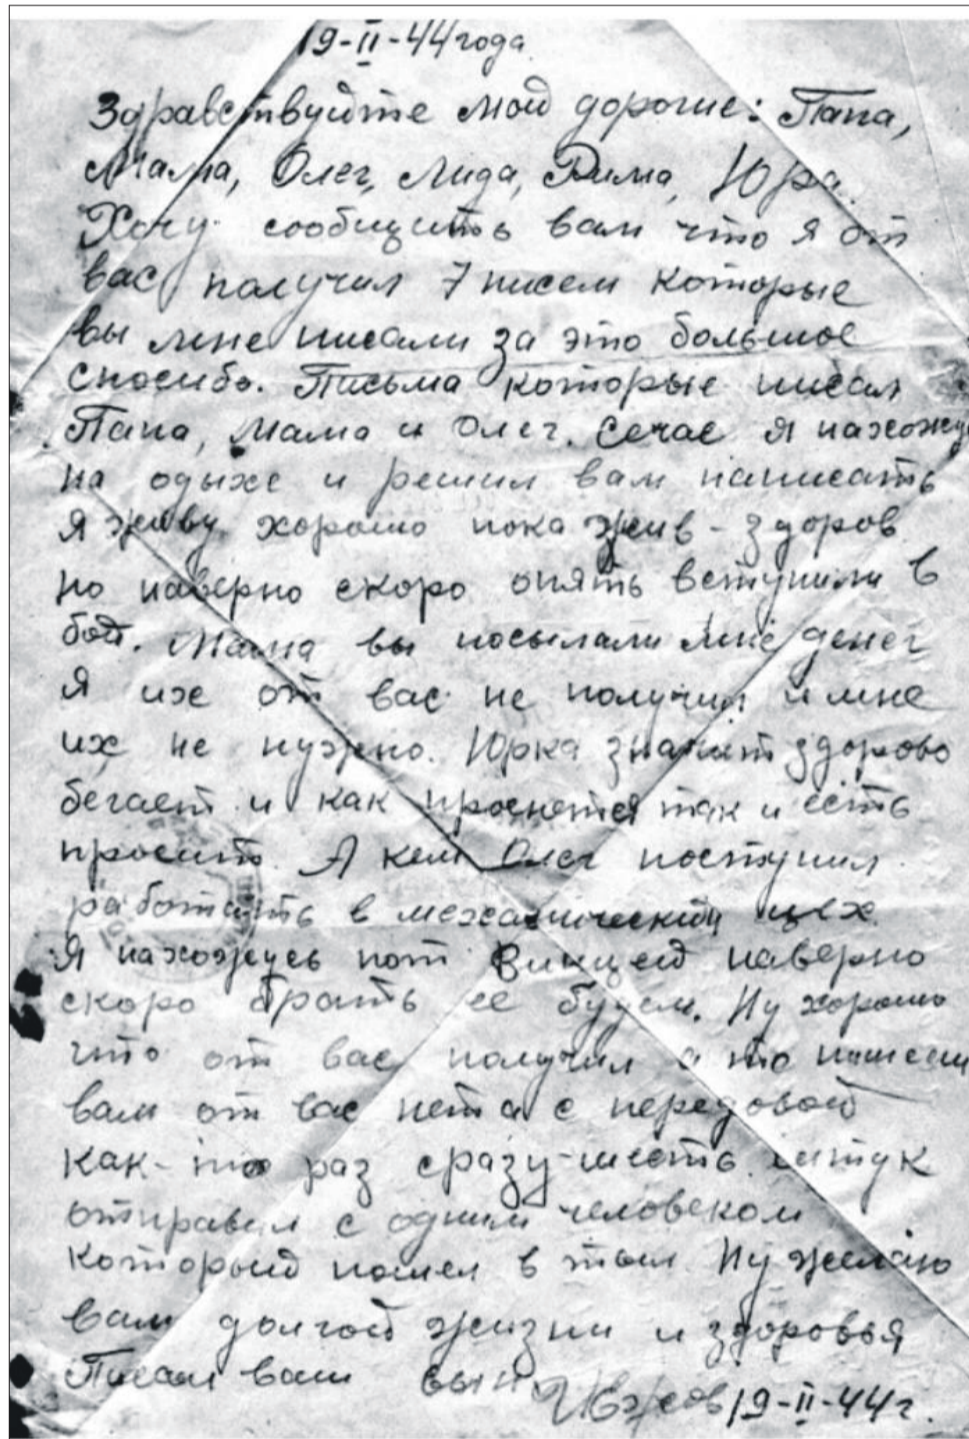 19-II-44 года
Здравствуйте мои дорогие: Папа,
Мама, Олег, Лида, Рима, Юра
Хочу сообщить вам что я от
вас получил 7 писем которые
вы мне писали за это большое
спосибо. Письма которые писал
Папа, Мама и Олег. Сечас я нахожу
на одыхе и решил вам написать
я живу хорошо пока жив-здоров
но наверно скоро опять вступим в
бой. Мама вы посылали мне денег
я их от вас не получил и мне
их не нужно. Юрка значит здорово
бегает и как проснется так и есть
просит. А кем Олег поступил
работать в механический цех
Я нахожусь пот наверно
скоро брать ее будем. Ну хорошо
что от вас получил а то пишем
вам от вас нет а с передовой
как-то раз сразу шесть штук
отправил с одним человеком
который пошел в тыл Ну желаю
вам долгой жизни и здоровья
Писал ваш сын
19-II-44 г.